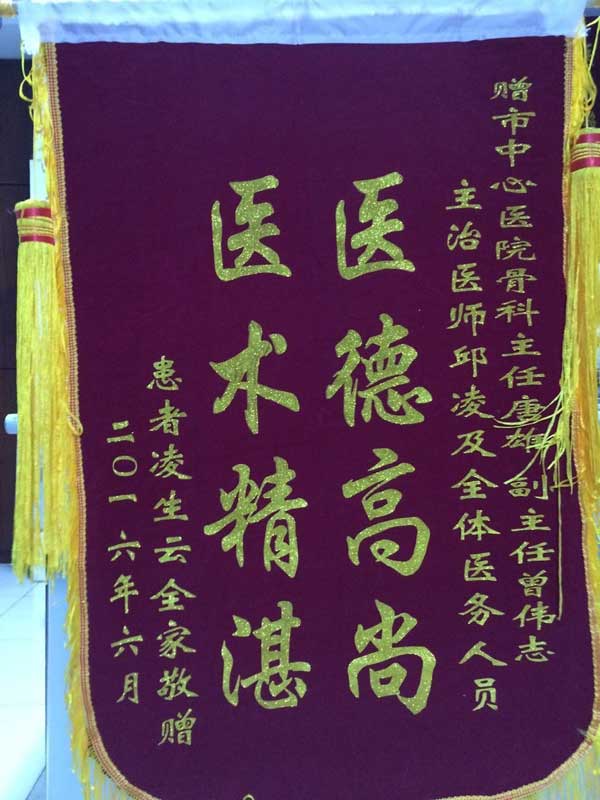 赠市中心医院骨科主任唐雄副主任曾伟志
主治医师邱凌及全体医务人员
医德高尚
医术精湛
患者凌生云全家敬赠
二〇一六年六月